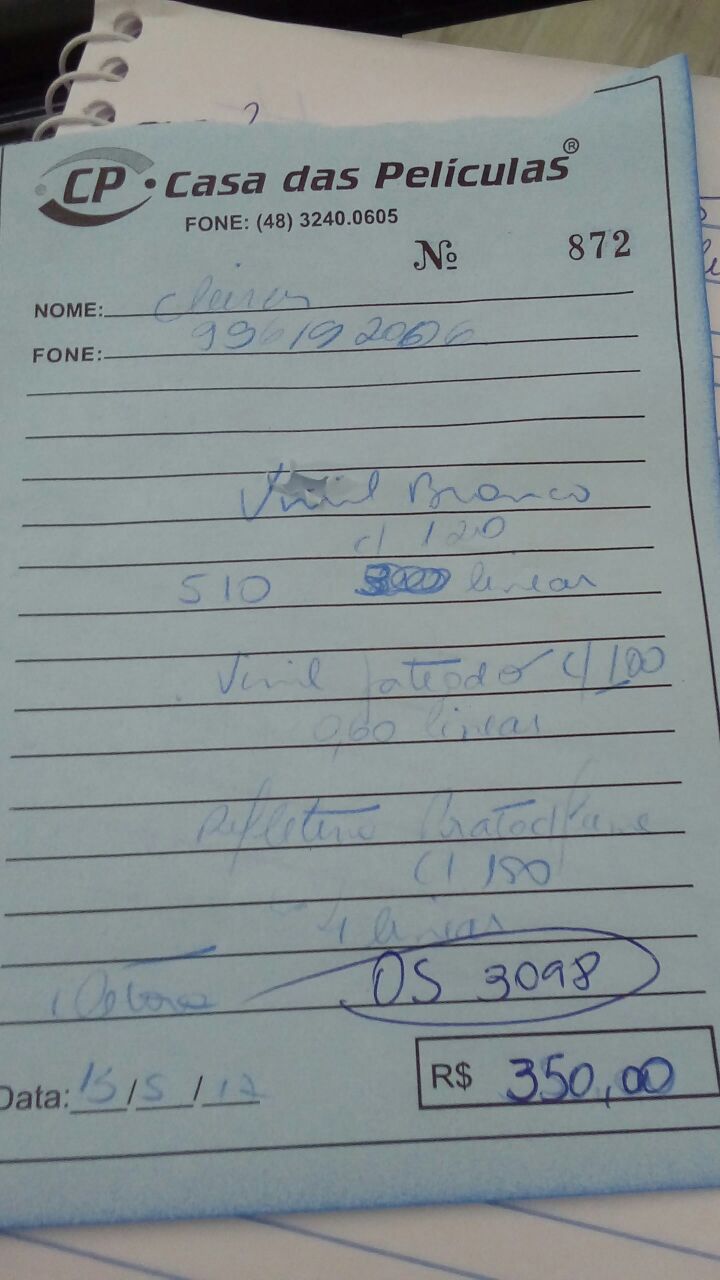 CP • Casa das Películas ®
FONE: (48) 3240.0605
Nº 872
NOME:
FONE: 996192006
Vinil Branco
c/ 120
510 linear
Vinil Jateado c/ 100
0,60 linear
Refletivo
c/ 150
4 linear
OS 3098
Data: 15/5/17
R$ 350,00